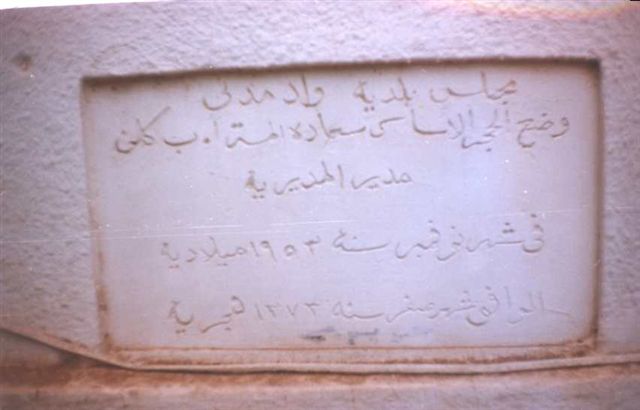 مجلس بلدية واد مدنى
وضع الحجر الاساسى سعادة المستر ا. ب كلن
مدير المديرية
فى شهر نوفمبر سنة ١٩٥٣ ميلادية
الموافق شهر صفر سنة ١٣٧٣ هجرية